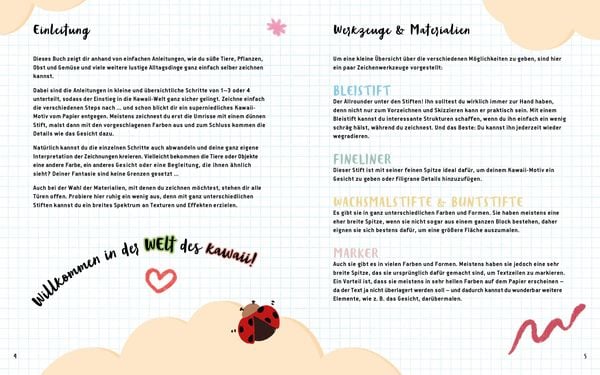 Einleitung
Dieses Buch zeigt dir anhand von einfachen Anleitungen, wie du süße Tiere, Pflanzen,
Obst und Gemüse und viele weitere lustige Alltagsdinge ganz einfach selber zeichnen
kannst.
Dabei sind die Anleitungen in kleine und übersichtliche Schritte von 1–3 oder 4
unterteilt, sodass der Einstieg in die Kawaii-Welt ganz sicher gelingt. Zeichne einfach
die verschiedenen Steps nach ... und schon blickt dir ein superniedliches Kawaii-
Motiv vom Papier entgegen. Meistens zeichnest du erst die Umrisse mit einem dünnen
Stift, malst dann mit den vorgeschlagenen Farben aus und zum Schluss kommen die
Details wie das Gesicht dazu.
Natürlich kannst du die einzelnen Schritte auch abwandeln und deine ganz eigene
Interpretation der Zeichnungen kreieren. Vielleicht bekommen die Tiere oder Objekte
eine andere Farbe, ein anderes Gesicht oder eine Begleitung, die ihnen ähnlich
sieht? Deiner Fantasie sind keine Grenzen gesetzt ...
Auch bei der Wahl der Materialien, mit denen du zeichnen möchtest, stehen dir alle
Türen offen. Probiere hier ruhig ein wenig aus, denn mit ganz unterschiedlichen
Stiften kannst du ein breites Spektrum an Texturen und Effekten erzielen.
Willkommen in der WELT des Kawaii!
4
Werkzeuge & Materialien
Um eine kleine Übersicht über die verschiedenen Möglichkeiten zu geben, sind hier
ein paar Zeichenwerkzeuge vorgestellt:
BLEISTIFT
Der Allrounder unter den Stiften! Ihn solltest du wirklich immer zur Hand haben,
denn nicht nur zum Vorzeichnen und Skizzieren kann er praktisch sein. Mit einem
Bleistift kannst du interessante Strukturen schaffen, wenn du ihn einfach ein wenig
schräg hälst, während du zeichnest. Und das Beste: Du kannst ihn jederzeit wieder
wegradieren.
FINELINER
Dieser Stift ist mit seiner feinen Spitze ideal dafür, um deinem Kawaii-Motiv ein
Gesicht zu geben oder filigrane Details hinzuzufügen.
WACHSMALSTIFTE & BUNTSTIFTE
Es gibt sie in ganz unterschiedlichen Farben und Formen. Sie haben meistens eine
eher breite Spitze, wenn sie nicht sogar aus einem ganzen Block bestehen, daher
eignen sie sich bestens dafür, um eine größere Fläche auszumalen.
MARKER
Auch sie gibt es in vielen Farben und Formen. Meistens haben sie jedoch eine sehr
breite Spitze, das sie ursprünglich dafür gemacht sind, um Textzeilen zu markieren.
Ein Vorteil ist, dass sie meistens in sehr hellen Farben auf dem Papier erscheinen –
da der Text ja nicht überlagert werden soll – und dadurch kannst du wunderbar weitere
Elemente, wie z. B. das Gesicht, darübermalen.
5